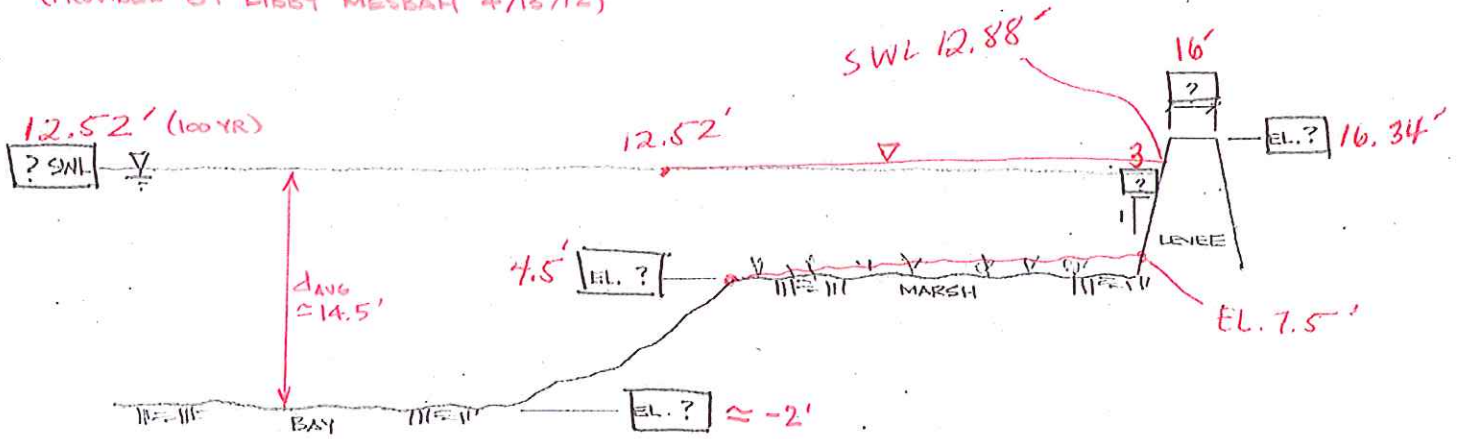 (PROVIDED BY LIBBY MESBAH 4/13/12)
SWL 12.88'
16'
?
12.52' (100 YR)
? SWL
12.52'
EL. ? 16.34'
3
?
1
LEVEE
4.5' EL. ?
MARSH
EL. 7.5'
dAVG
≃14.5'
BAY
EL. ? ≈ -2'